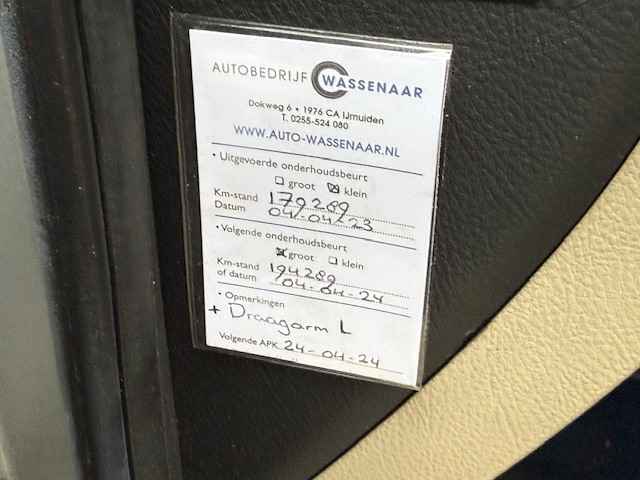 AUTOBEDRIJF WASSENAAR
Dokweg 6 • 1976 CA IJmuiden
T. 0255-524 080
WWW.AUTO-WASSENAAR.NL
• Uitgevoerde onderhoudsbeurt
groot klein
Km-stand 179289
Datum 04-04-23
• Volgende onderhoudsbeurt
groot klein
Km-stand 194289
of datum 04-04-24
• Opmerkingen
+ Draagarm L
Volgende APK 24-04-24